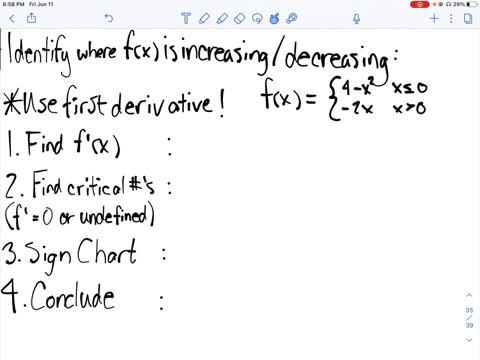 6:58 PM Fri Jun 11
29%
Identify where f(x) is increasing/decreasing:
*Use first derivative! f(x) = { 4-x² x≤0
-2x x>0
1. Find f'(x) :
2. Find critical #'s :
(f' = 0 or undefined)
3. Sign Chart :
4. Conclude :
35
/
39